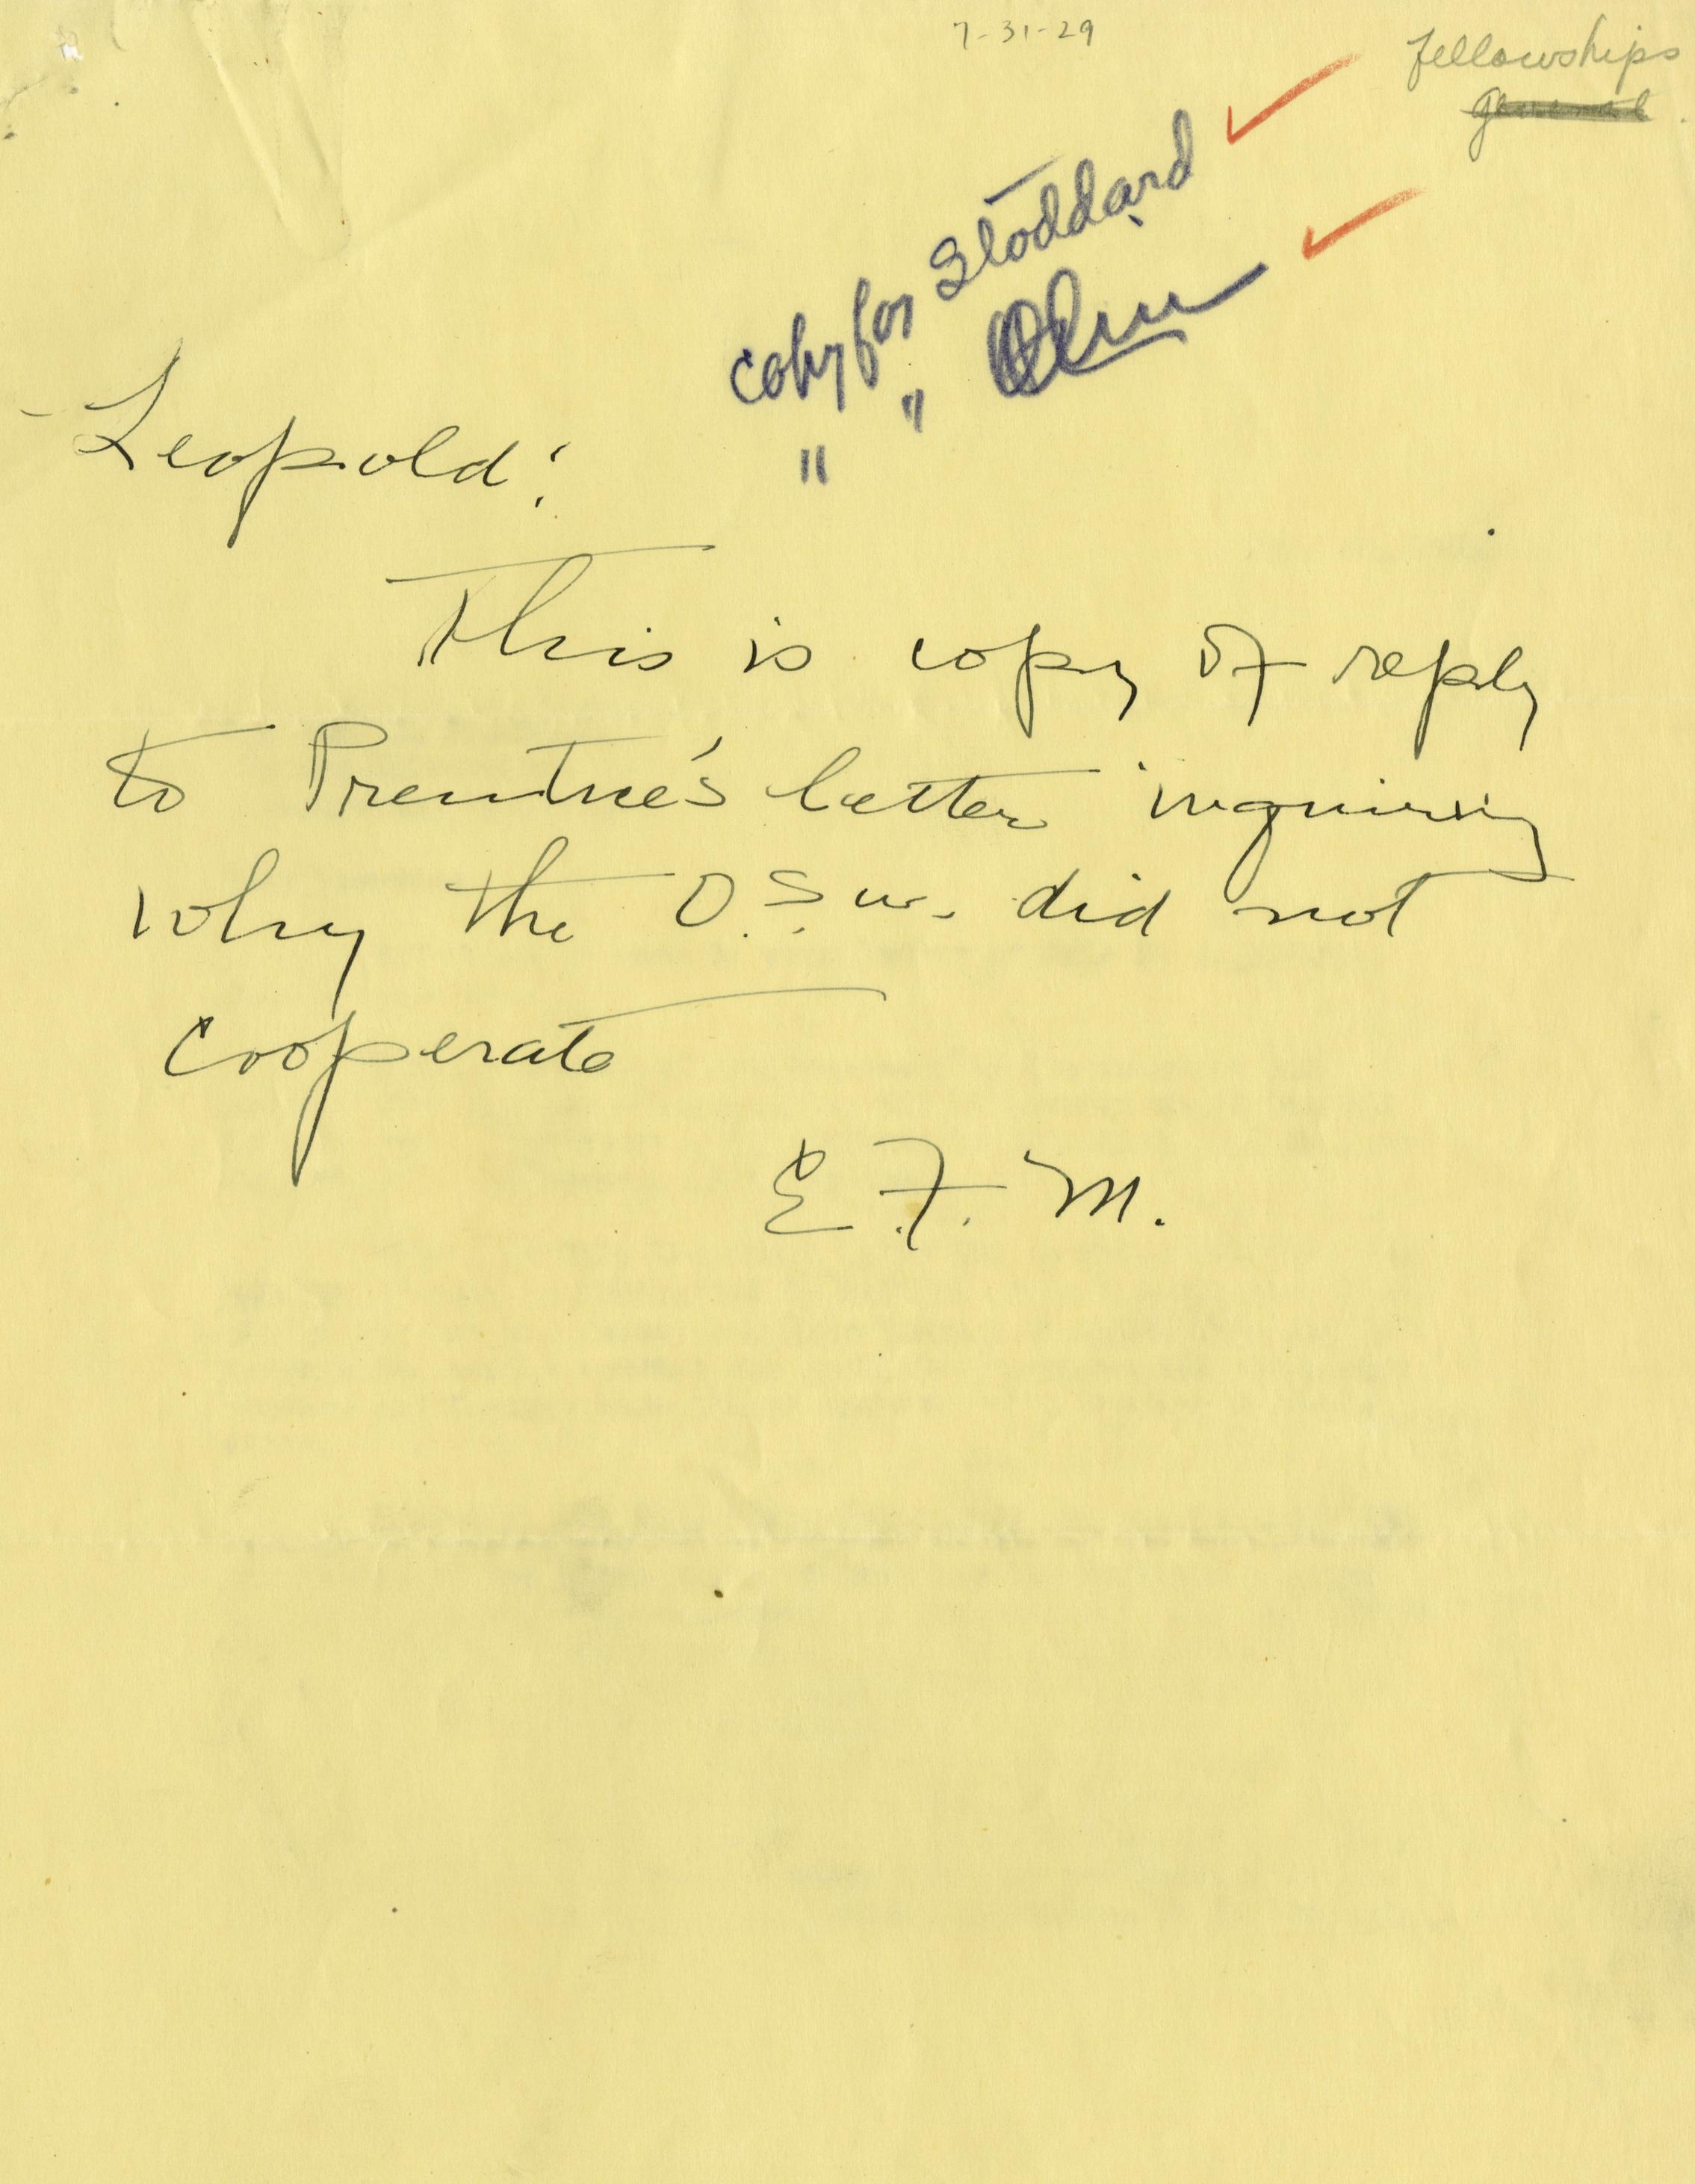 7-31-29
fellowships
general
copy for Stoddard
" "
Leopold:
This is copy of reply
to Prentice's letter inquiring
why the O.S.U. did not
cooperate
E.F.M.